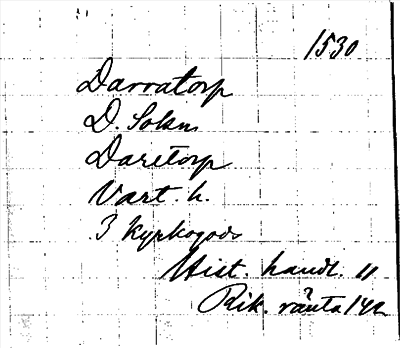 1530
Darratorp
D. Sokn
Daretorp
Vart. h.
3 kyrkogods
Hist. handl. 11
Rik. ränta 142